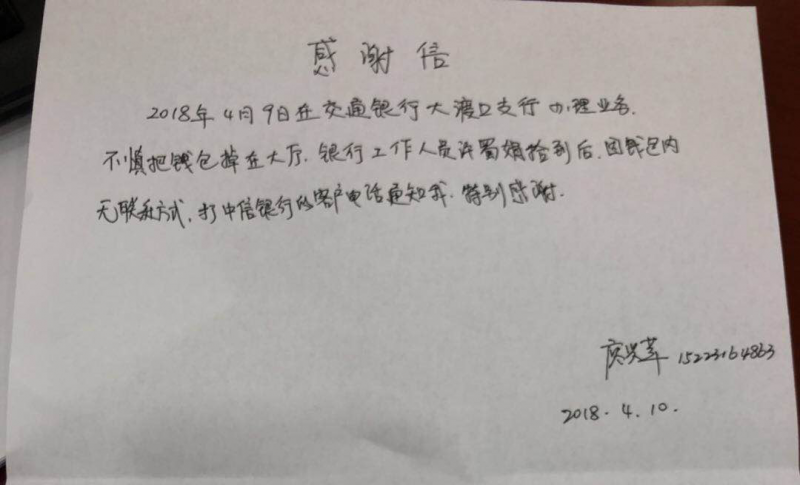 感谢信
2018年4月9日在交通银行大渡口支行办理业务.
不慎把钱包掉在大厅.银行工作人员许蜀娟捡到后.因钱包内
无联系方式,打中信银行的客户电话通知我.特别感谢.
15223164863
2018.4.10.